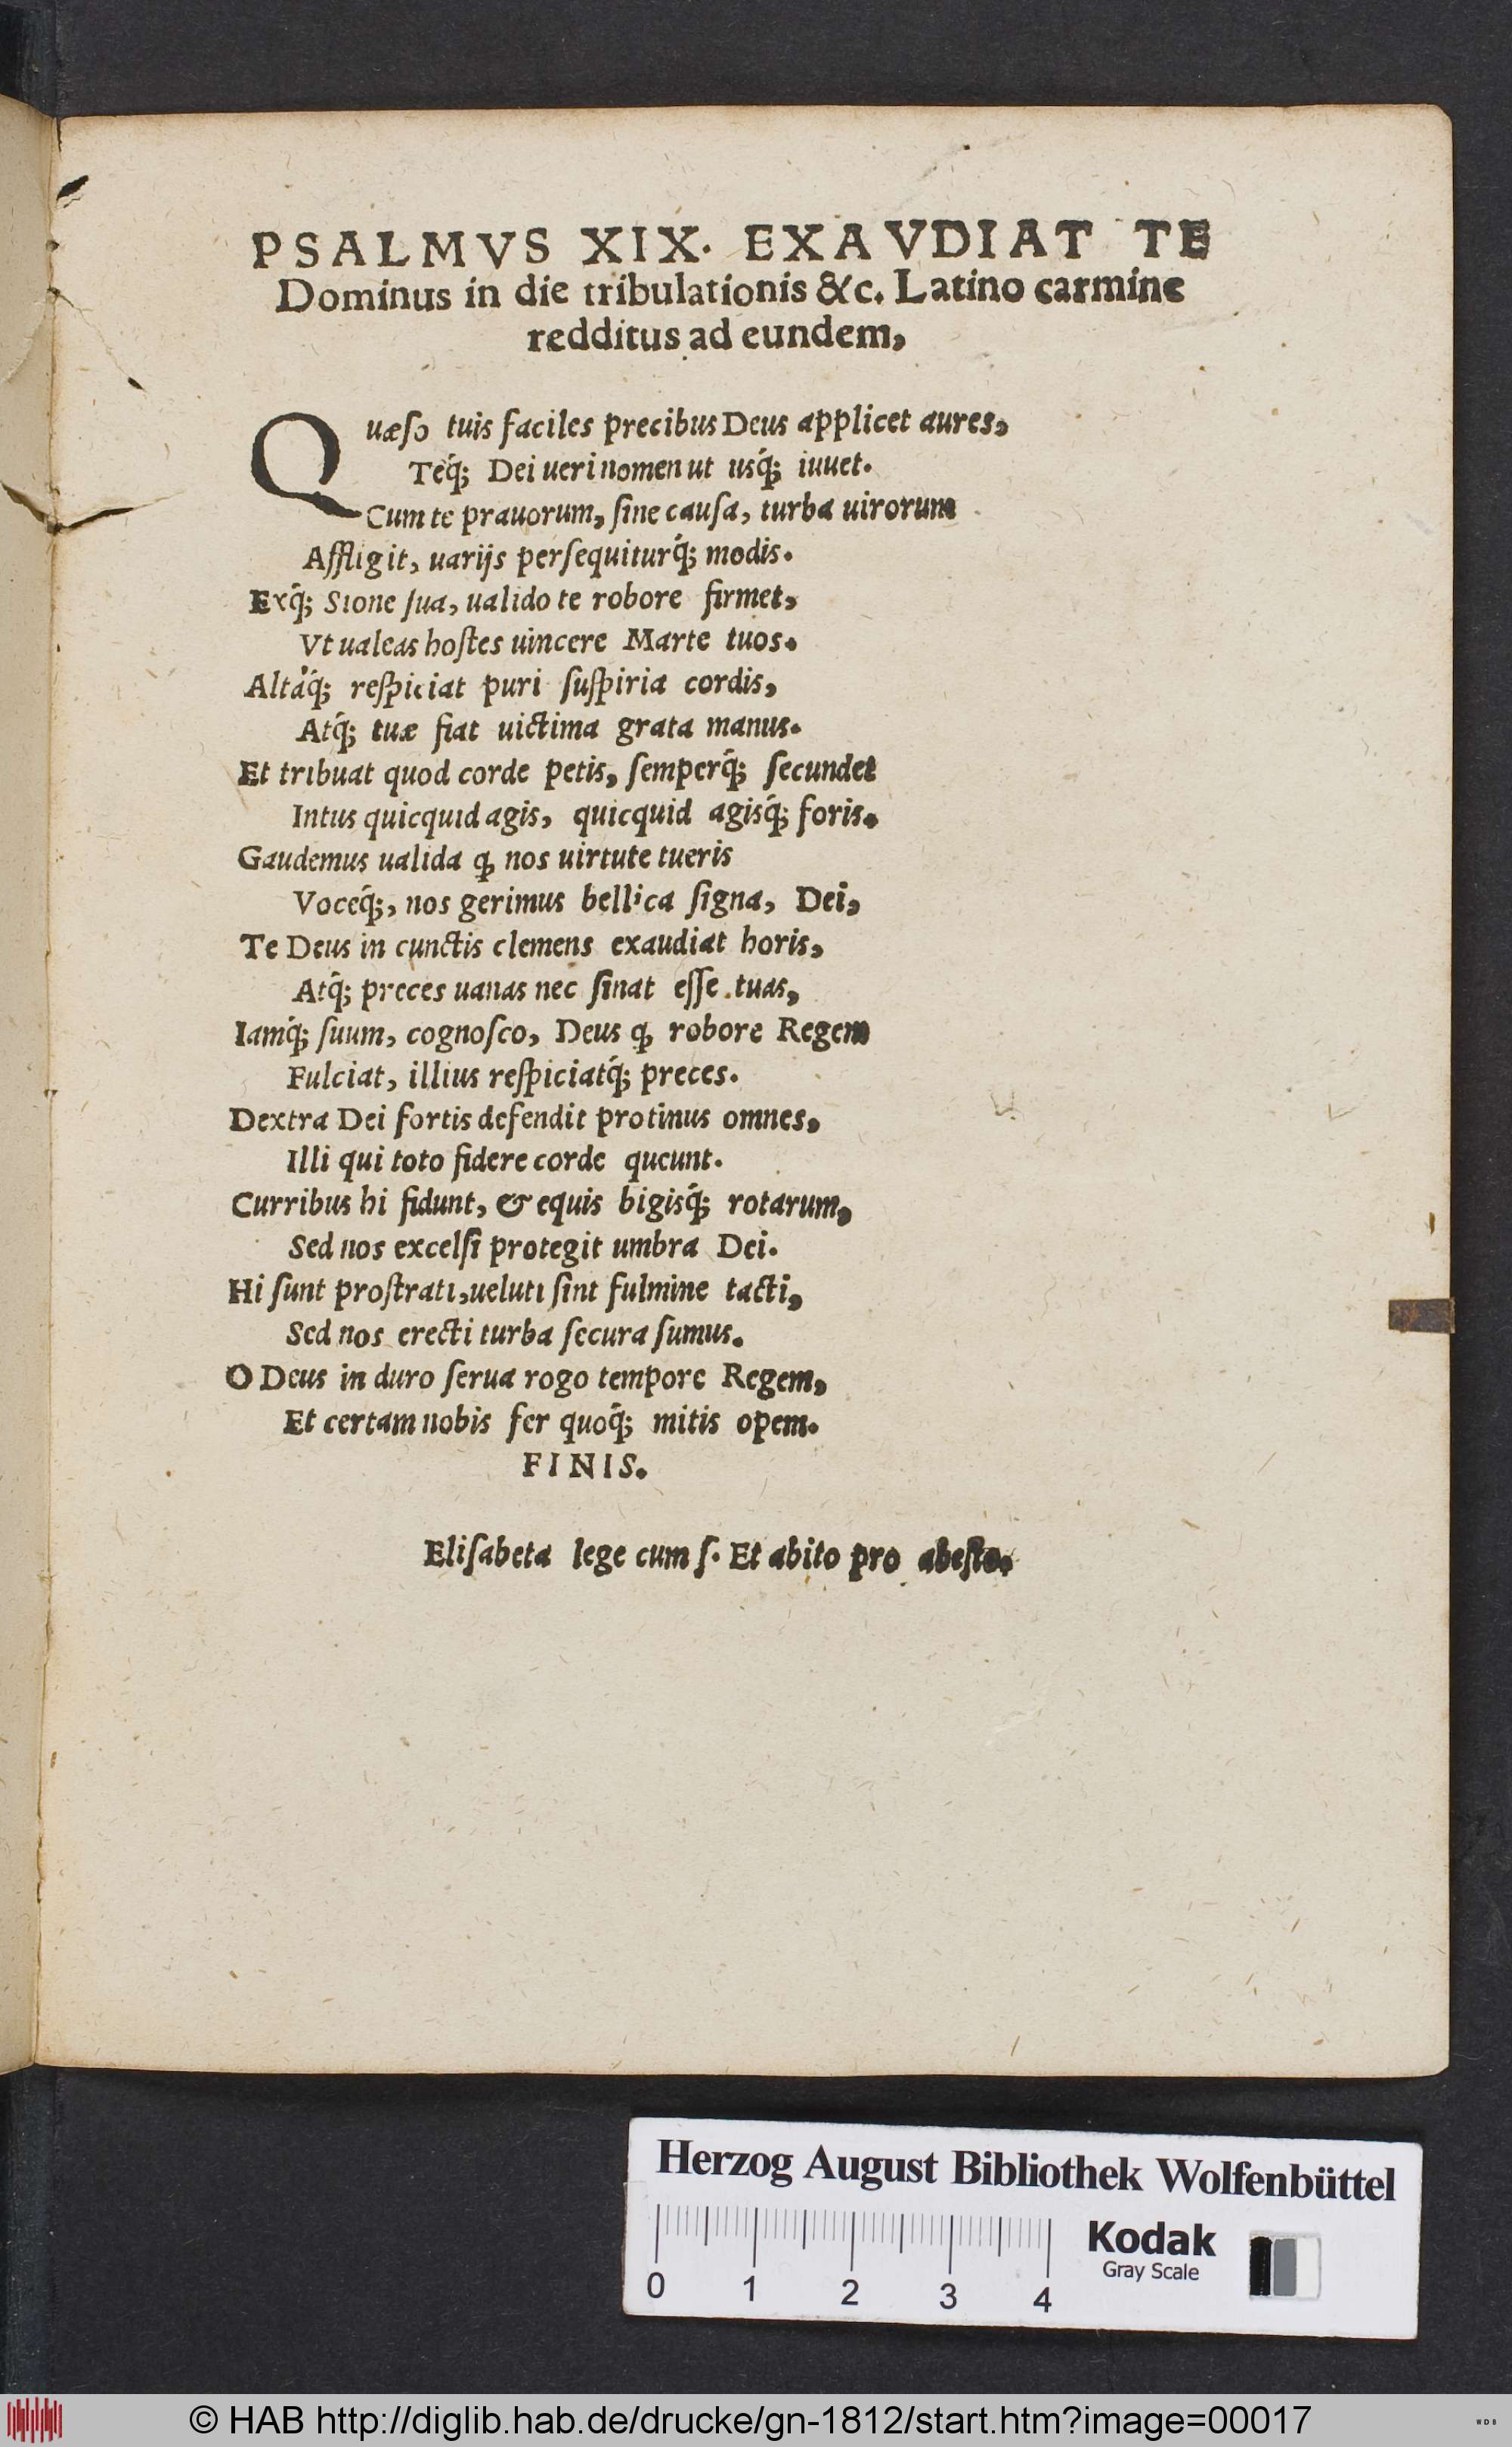 PSALMVS XIX. EXAVDIAT TE
Dominus in die tribulationis &c. Latino carmine
redditus ad eundem,
Quæſo tuis faciles precibus Deus applicet aures,
Teq́; Dei ueri nomen ut usq́; iuuet.
Cum te prauorum, ſine cauſa, turba uirorum
Affligit, uarijs perſequiturq́; modis.
Exq́; Sione ſua, ualido te robore firmet,
Vt ualeas hoſtes uincere Marte tuos.
Altaq́; reſpiciat puri ſuſpiria cordis,
Atq́; tuæ fiat uictima grata manus.
Et tribuat quod corde petis, ſemperq́; ſecundet
Intus quicquid agis, quicquid agisq́; foris.
Gaudemus ualida ꝙ nos uirtute tueris
Voceq́;, nos gerimus bellica ſigna, Dei,
Te Deus in cunctis clemens exaudiat horis,
Atq́; preces uanas nec ſinat eſſe tuas,
Iamq́; ſuum, cognoſco, Deus ꝙ robore Regem
Fulciat, illius reſpiciatq́; preces.
Dextra Dei fortis defendit protinus omnes,
Illi qui toto fidere corde queunt.
Curribus hi fidunt, & equis bigisq́; rotarum,
Sed nos excelſi protegit umbra Dei.
Hi ſunt proſtrati, ueluti ſint fulmine tacti,
Sed nos erecti turba ſecura ſumus.
O Deus in duro ſerua rogo tempore Regem,
Et certam nobis fer quoq́; mitis opem.
FINIS.
Eliſabeta lege cum ſ. Et abito pro abeſto.
Herzog August Bibliothek Wolfenbüttel
0 1 2 3 4
Kodak
Gray Scale
© HAB http://diglib.hab.de/drucke/gn-1812/start.htm?image=00017
WDB